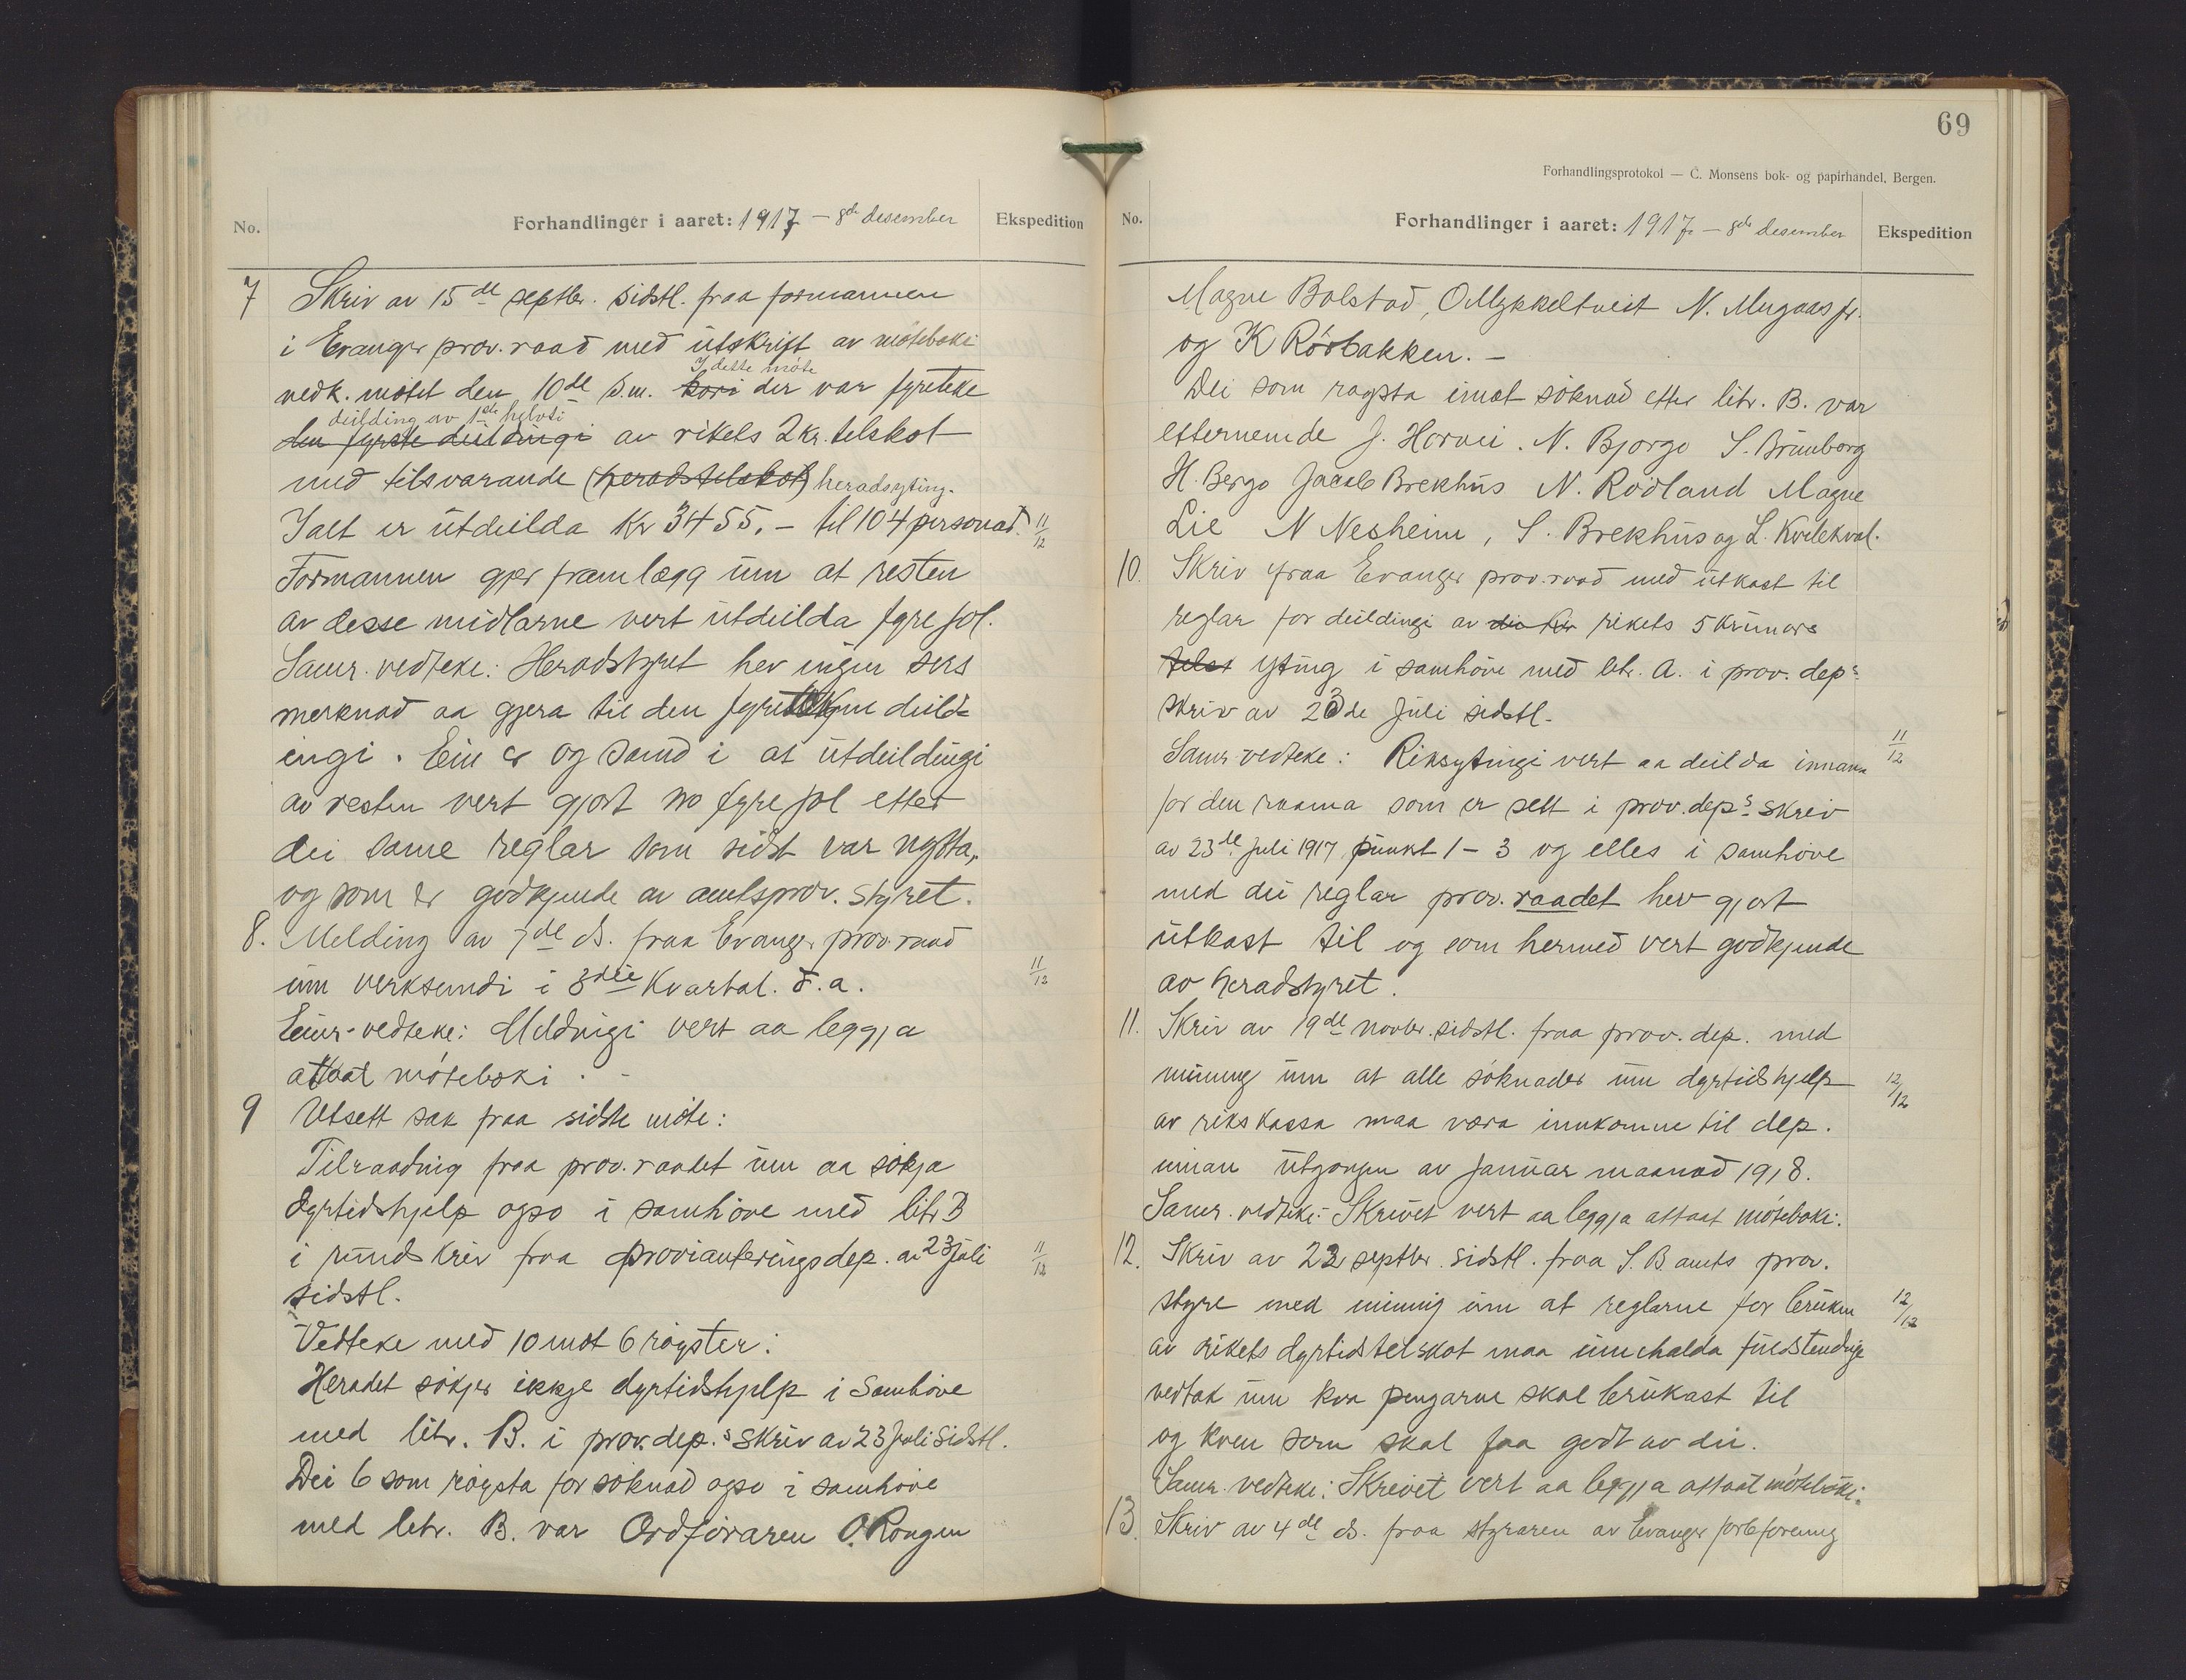 No. Forhandlinger i aaret: 1917 – 8de desember Ekspedition
7 Skriv av 15de septbr. sidstl. fraa formannen
i Evanger prov. raad med utskrift av møteboki
I dette møte
vedk. møtet den 10de s.m. kori der var fyreteke
deilding av 1ste helvti
den fyrste deildingi av rikets 2 kr. telskot
med tilsvarande (heradstelskot) heradsyting.
Ialt er utdeilda Kr 3455.– til 104 personar. 11/12
Formannen gjer framlegg um at resten
av desse midlarne vert utdeilda fyre jol.
Samr. vedteke: Heradstyret hev ingen sers
merknad aa gjera til den fyretekne deild-
ingi. Ein er og samd i at utdeildingi
av resten vert gjort no fyre jol etter
dei same reglar som sidst var nytta,
og som er godkjende av amtsprov. styret.
8. Melding av 7de ds. fraa Evanger prov. raad
um verksemdi i 3die Kvartal. d. a. 11/12
Einr. vedteke: Meldingi vert aa leggja
attaat møteboki. –
9 Utsett sak fraa sidste møte:
Tilraading fraa prov. raadet um aa søkja
dyrtidshjelp ogso i samhøve med litr B
i rundskriv fraa provianteringsdep. av 23 juli 11/12
sidstl.
Vedteke med 10 mot 6 røyster:
Heradet søkjer ikkje dyrtidshjelp i samhøve
med litr. B. i prov. dep.s skriv av 23 juli sidstl.
Dei 6 som røysta for søknad ogso i samhøve
med litr. B. var Ordføraren O. Rongen
69
Forhandlingsprotokol — C. Monsens bok- og papirhandel, Bergen.
No. Forhandlinger i aaret: 1917 – 8de desember Ekspedition
Magne Bolstad, O Mykkeltveit N. Mugaas jr.
og K Rørbakken. –
Dei som røysta imot søknad etter litr. B. var
etternemde J. Horvei. N. Bjørgo S. Brunborg
H. Bergo Jacob Brekhus N. Rødland Magne
Lie N Nesheim, S. Brekhus og L. Kvilekval.
10. Skriv fraa Evanger prov. raad med utkast til
reglar for deildingi av rikets 5 kruners
telsk yting i samhøve med litr. A. i prov. dep.s
skriv av 23de juli sidstl.
Samr vedteke: Riksytingi vert aa deilda innanu 11/12
for den raama som er sett i prov. dep.s skriv
av 23de juli 1917 punkt 1 – 3 og elles i samhøve
med dei reglar prov. raadet hev gjort
utkast til og som hermed vert godkjende
av heradstyret.
11. Skriv av 19de novbr. sidstl. fraa prov. dep. med
minning um at alle søknader um dyrtidshjelp 12/12
av rikskassa maa vera innkomne til dep.
innan utgangen av januar maanad 1918.
Samr. vedteke: Skrivet vert aa leggja attaat møteboki.
12. Skriv av 22 septbr. sidstl. fraa S. B. amts prov.
styre med minning um at reglarne for bruken 12/12
av rikets dyrtidstelskot maa innehalda fuldstendige
vedtak um kva pengarne skal brukast til
og kven som skal faa godt av dei.
Samr. vedteke: Skrivet vert aa leggja attaat møteboki.
13. Skriv av 4de ds. fraa styraren av Evanger forbforening